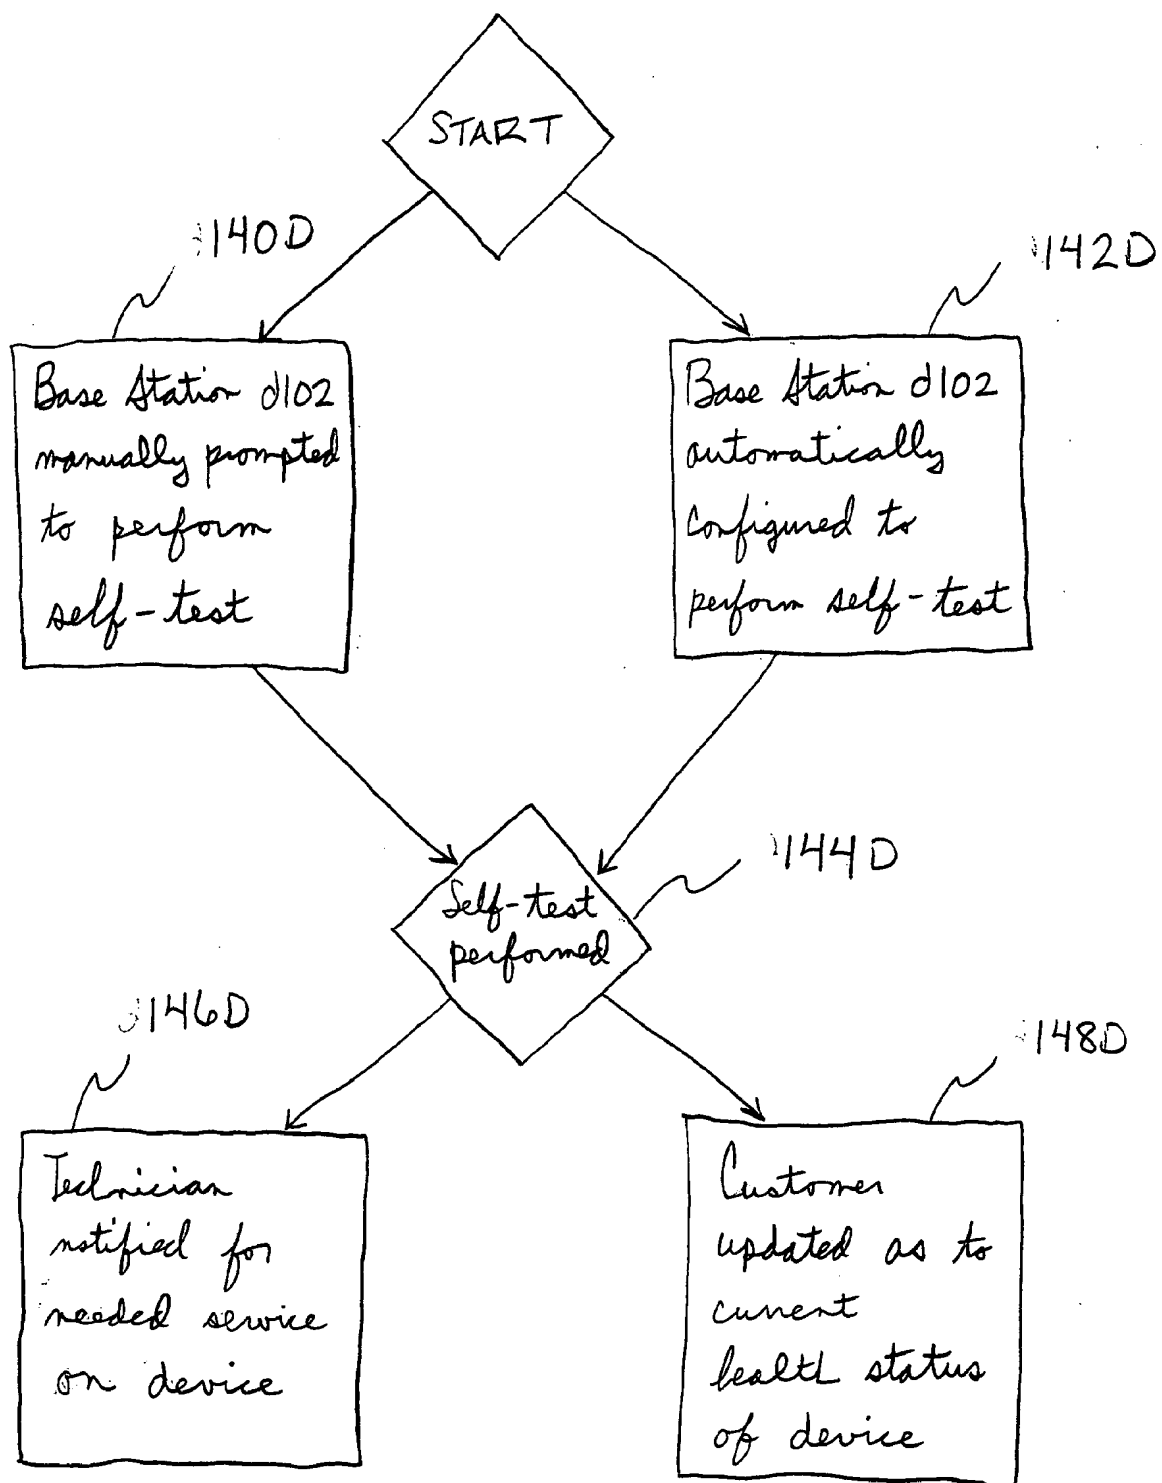 START
140D
142D
Base Station d102
manually prompted
to perform
self-test
Base Station d102
automatically
configured to
perform self-test
144D
Self-test
performed
146D
148D
Technician
notified for
needed service
on device
Customer
updated as to
current
health status
of device